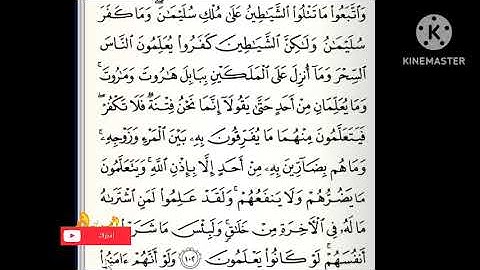 وَٱتَّبَعُوا۟ مَا تَتْلُوا۟ ٱلشَّيَـٰطِينُ عَلَىٰ مُلْكِ سُلَيْمَـٰنَ ۖ وَمَا كَفَرَ
سُلَيْمَـٰنُ وَلَـٰكِنَّ ٱلشَّيَـٰطِينَ كَفَرُوا۟ يُعَلِّمُونَ ٱلنَّاسَ
ٱلسِّحْرَ وَمَآ أُنزِلَ عَلَى ٱلْمَلَكَيْنِ بِبَابِلَ هَـٰرُوتَ وَمَـٰرُوتَ ۚ
وَمَا يُعَلِّمَانِ مِنْ أَحَدٍ حَتَّىٰ يَقُولَآ إِنَّمَا نَحْنُ فِتْنَةٌ فَلَا تَكْفُرْ ۖ
فَيَتَعَلَّمُونَ مِنْهُمَا مَا يُفَرِّقُونَ بِهِۦ بَيْنَ ٱلْمَرْءِ وَزَوْجِهِۦ ۚ
وَمَا هُم بِضَآرِّينَ بِهِۦ مِنْ أَحَدٍ إِلَّا بِإِذْنِ ٱللَّهِ ۚ وَيَتَعَلَّمُونَ
مَا يَضُرُّهُمْ وَلَا يَنفَعُهُمْ ۚ وَلَقَدْ عَلِمُوا۟ لَمَنِ ٱشْتَرَىٰهُ
مَا لَهُۥ فِى ٱلْـَٔاخِرَةِ مِنْ خَلَـٰقٍ ۚ وَلَبِئْسَ مَا شَرَ
أَنفُسَهُمْ ۚ لَوْ كَانُوا۟ يَعْلَمُونَ ١٠٢ وَلَوْ أَنَّهُمْ ءَامَنُوا۟
KINEMASTER